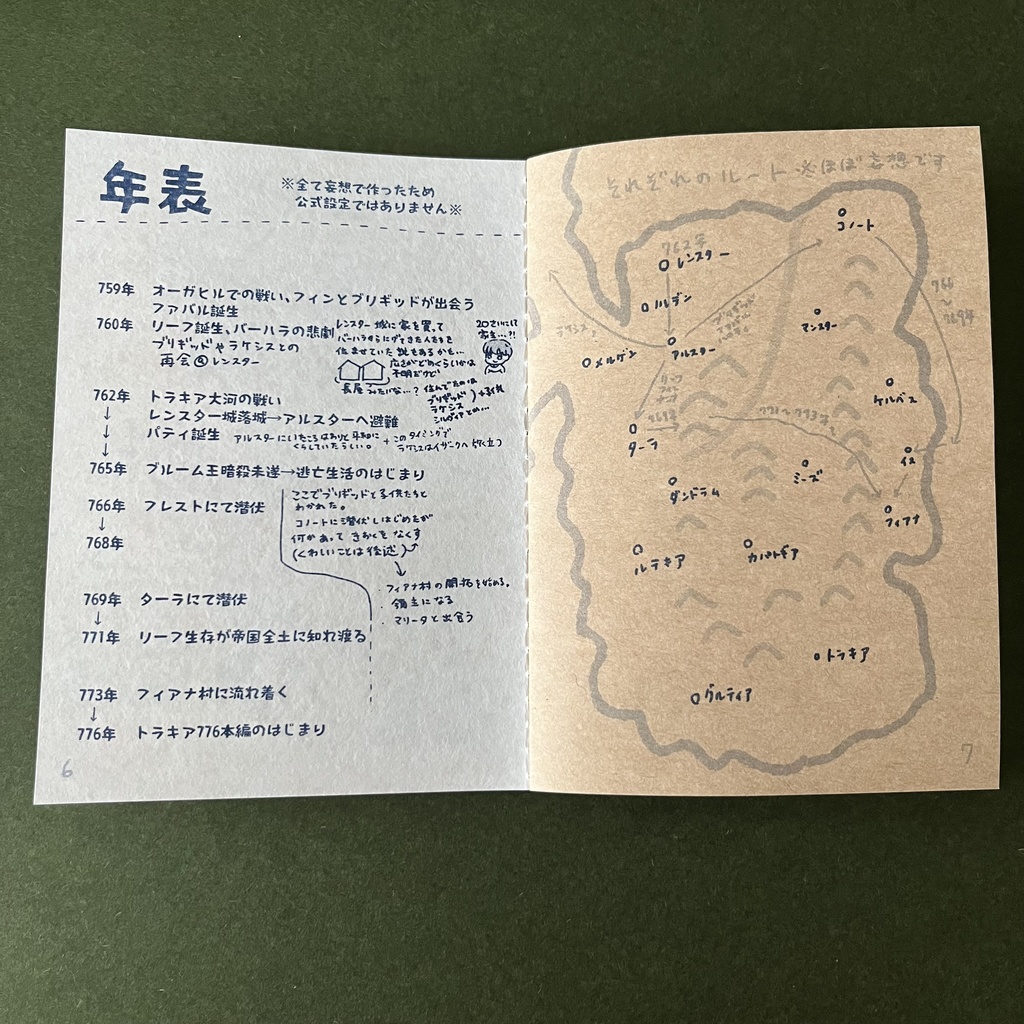 年表
※全て妄想で作ったため
公式設定ではありません※
759年 オーガヒルでの戦い、フィンとブリギッドが出会う
ファバル誕生
760年 リーフ誕生、バーハラの悲劇
ブリギッドやラケシスとの
再会@レンスター
レンスター城に家を買って
住ませていた説もあるかも…
広さがどのくらいかは
不明だけど
長屋みたいな…?
住んでたのは
ブリギッド
ラケシス
シルヴィアとの…
+子供
20さいにして
家主…?!
762年 トラキア大河の戦い
↓ レンスター城落城→アルスターへ避難
↓ パティ誕生
アルスターにいたころはわりと平和に
くらしていたらしい。
+このタイミングで
ラケシスはイザークへ旅立つ
765年 ブルーム王暗殺未遂→逃亡生活のはじまり
766年 フレストにて潜伏
↓
768年
ここでブリギッドと子供たちと
わかれた。
コノートに潜伏しはじめたが
何かあってきおくをなくす
(くわしいことは後述)
・フィアナ村の開拓を始める。
・領主になる
・マリータと出会う
769年 ターラにて潜伏
↓
771年 リーフ生存が帝国全土に知れ渡る
773年 フィアナ村に流れ着く
↓
776年 トラキア776本編のはじまり
6
それぞれのルート ※ほぼ妄想です
コノート
762年
レンスター
アルデン
マンスター
ラケシス
メルゲン
アルスター
ブリギッド
766
~
769年
ケルベス
リーフ
フィン
ナンナ
ターラ
771~773年
イス
ミーズ
ダンドラム
フィアナ
ルテキア
カパトギア
トラキア
グルティア
7